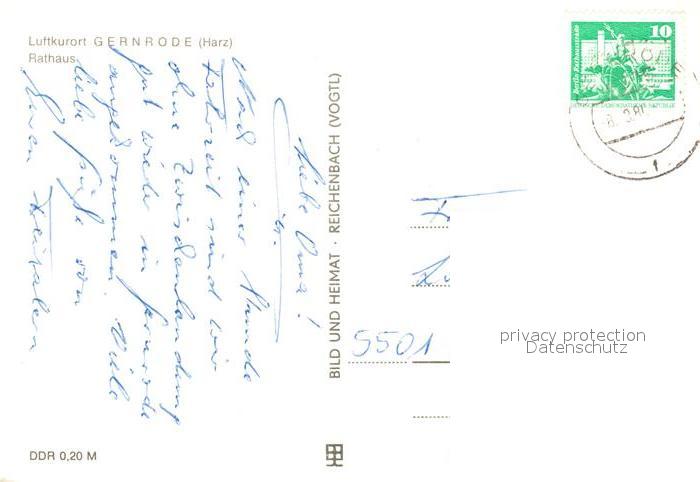 Luftkurort GERNRODE (Harz)
Rathaus
Liebe Oma!
Nach einer Stunde
Fahrzeit sind wir
ohne Zwischenlandung
gut wieder in
angekommen. Viele
liebe Grüße von
Euren
BILD UND HEIMAT · REICHENBACH (VOGTL)
10
5501
privacy protection
Datenschutz
DDR 0,20 M